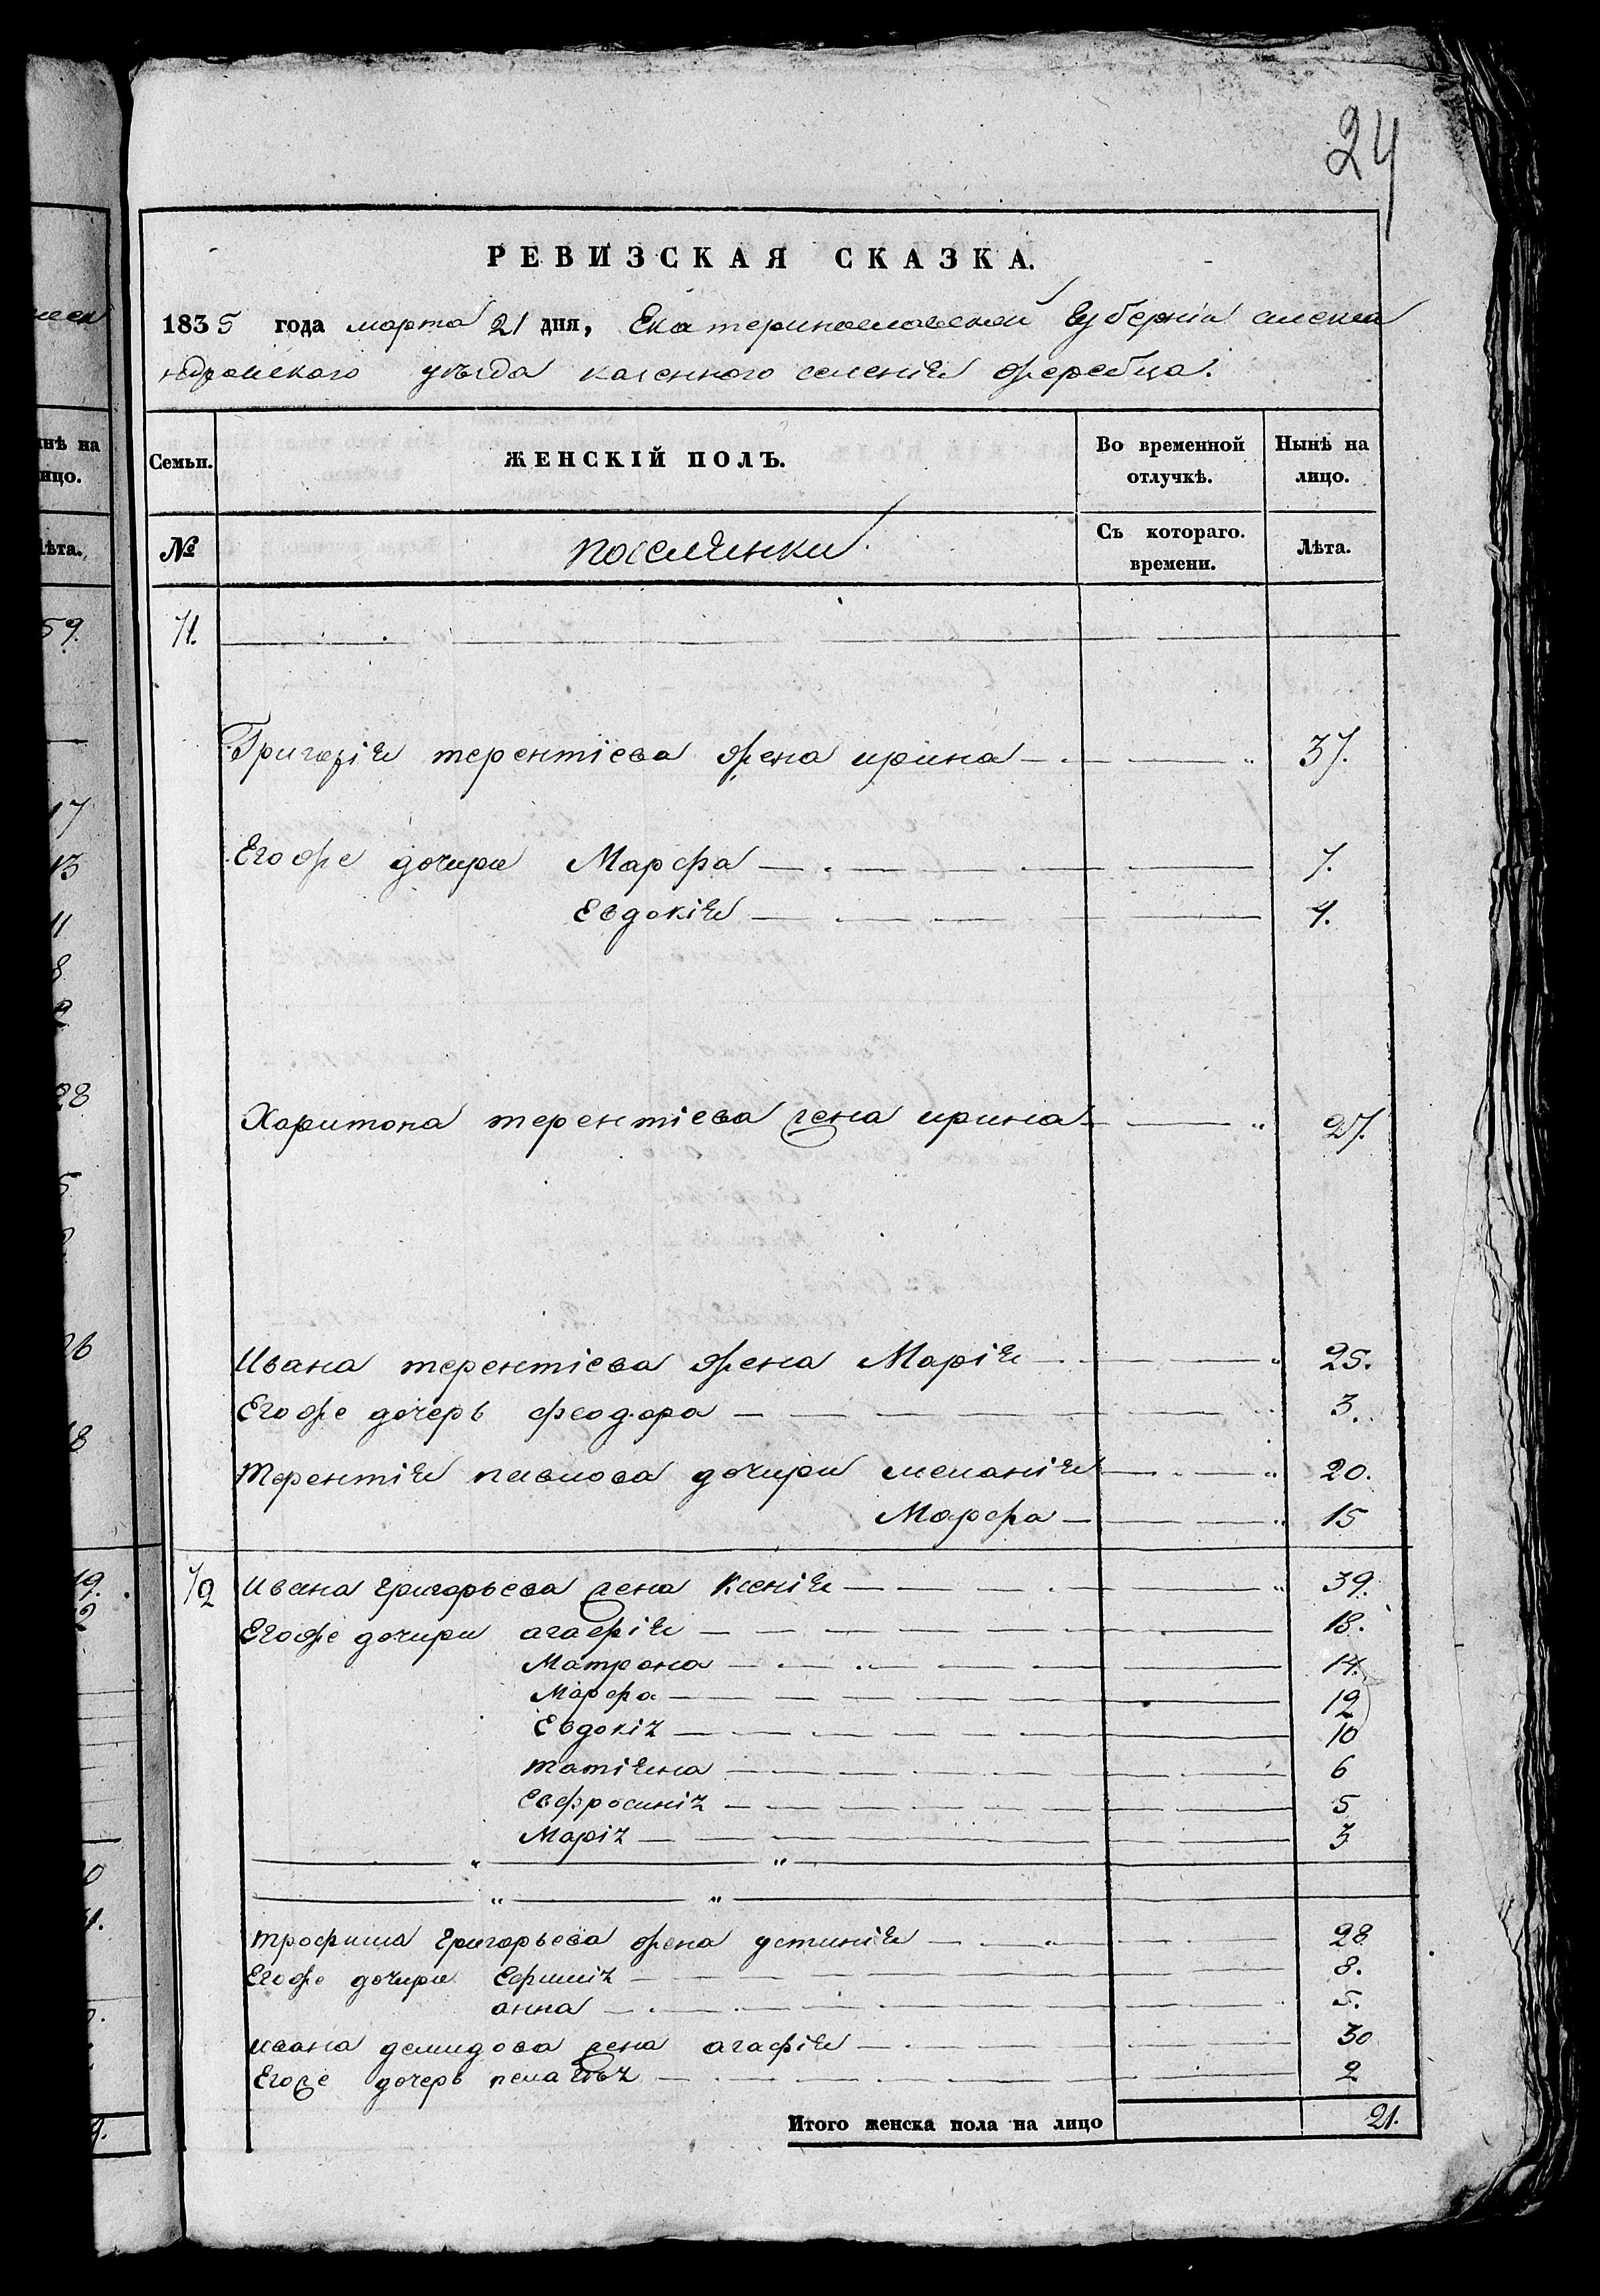 24
РЕВИЗСКАЯ СКАЗКА.
1835 года марта 21 дня, Екатеринославской Губерніи алекса
ндровского уѣзда казенного селенія Жеребца.
Семьи. ЖЕНСКІЙ ПОЛЪ. Во временной отлучкѣ. Нынѣ на лицо.
№ поселянки Съ котораго. времени. Лѣта.
71.
Григорія терентіева жена ирина 37.
Егоже дочери Марфа 7.
Евдокія 4.
Харитона терентіева жена ирина 27.
Ивана терентіева жена Марія 25.
Егоже дочерь феодора 3.
Терентія павлова дочери меланія 20.
Марфа 15
72 Ивана григорьева жена Ксенія 39.
Егоже дочери агафія 18.
Матрона 14.
Марфа 12
Евдокія 10
татіяна 6
Евфросинія 5
Марія 3
трофима григорьева жена устинія 28
Егоже дочери Ефимія 8.
анна 5.
ивана демидова жена агафія 30
Егоже дочерь пелагѣя 2
Итого женска пола на лицо 21.
нѣ на
ицо.
ѣта.
59.
17
13
11
8
2
28
5
26
18
19.